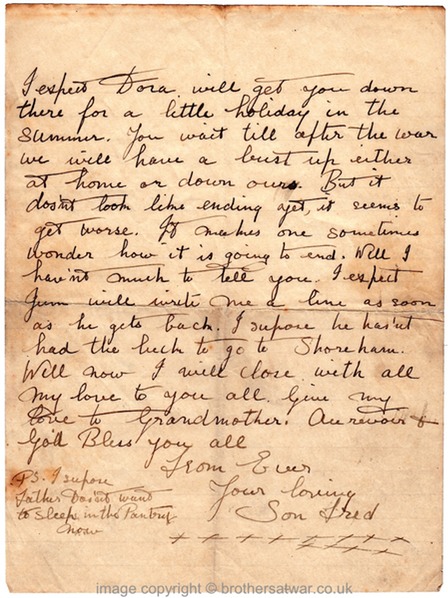 I expect Dora will get you down
there for a little holiday in the
summer. You wait till after the war
we will have a bust up either
at home or down ours. But it
dosnt look like ending yet, it seems to
get worse. It makes one sometimes
wonder how it is going to end. Well I
hav'nt much to tell you. I expect
Jum will write me a line as soon
as he gets back. I supose he has'nt
had the luck to go to Shoreham.
Well now I will close with all
my love to you all. Give my
love to Grandmother. Au revoir &
God Bless you all
From Ever
Your loving
Son Fred
PS. I supose
father Dosn't want
to sleep in the Pantry
now
+ + + + + + + + +
+ + + + +
image copyright © brothersatwar.co.uk